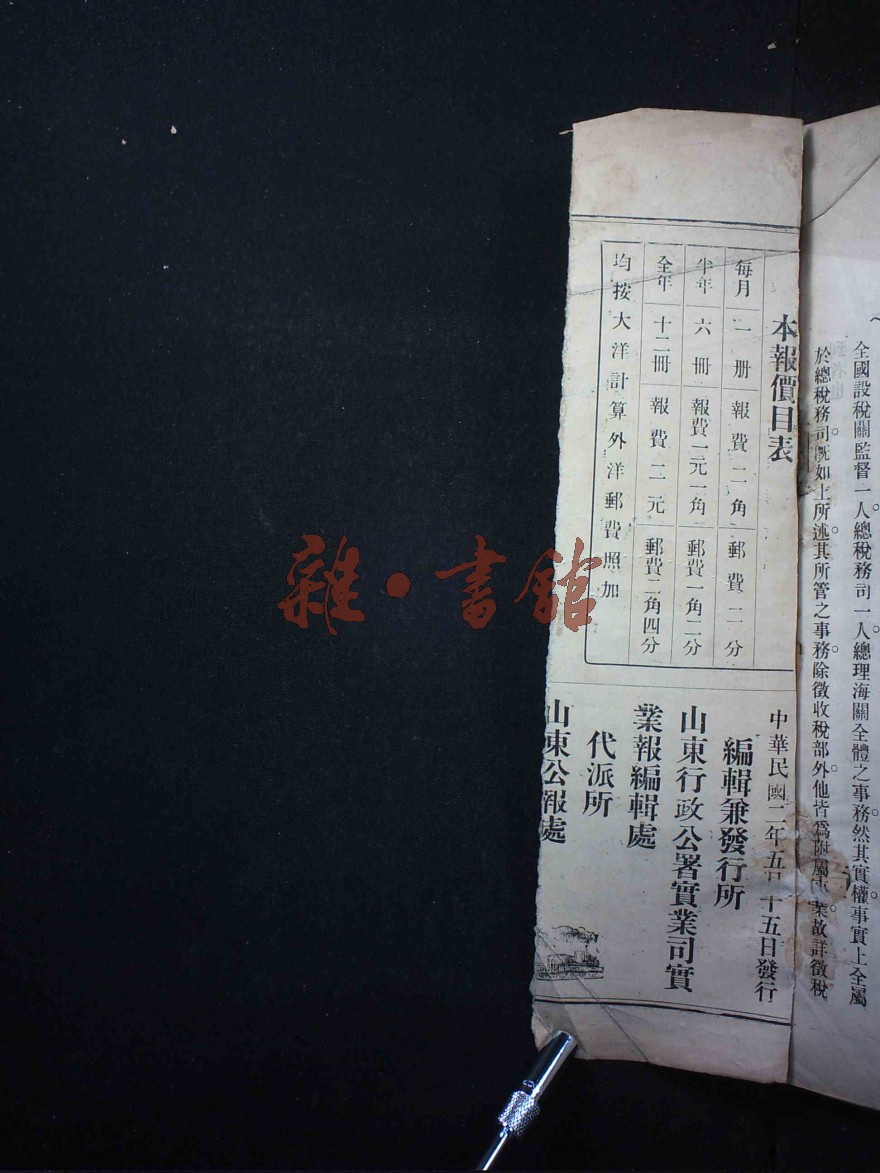 全國設稅關監督一人總稅務司一人總理海關全體之事務然其實權事實上全屬
於總稅務司既如上所述其所管之事務除徵收稅部外他皆爲附屬事業故詳徵稅
本報價目表
每月 一册 報費二角 郵費二分
半年 六冊 報費一元一角 郵費一角二分
全年 十二冊 報費二元 郵費二角四分
均按大洋計算外洋郵費照加
中華民國二年五月十五日發行
編輯兼發行所
山東行政公署實業司實
業報編輯處
代派所
山東公報處
雜·書館